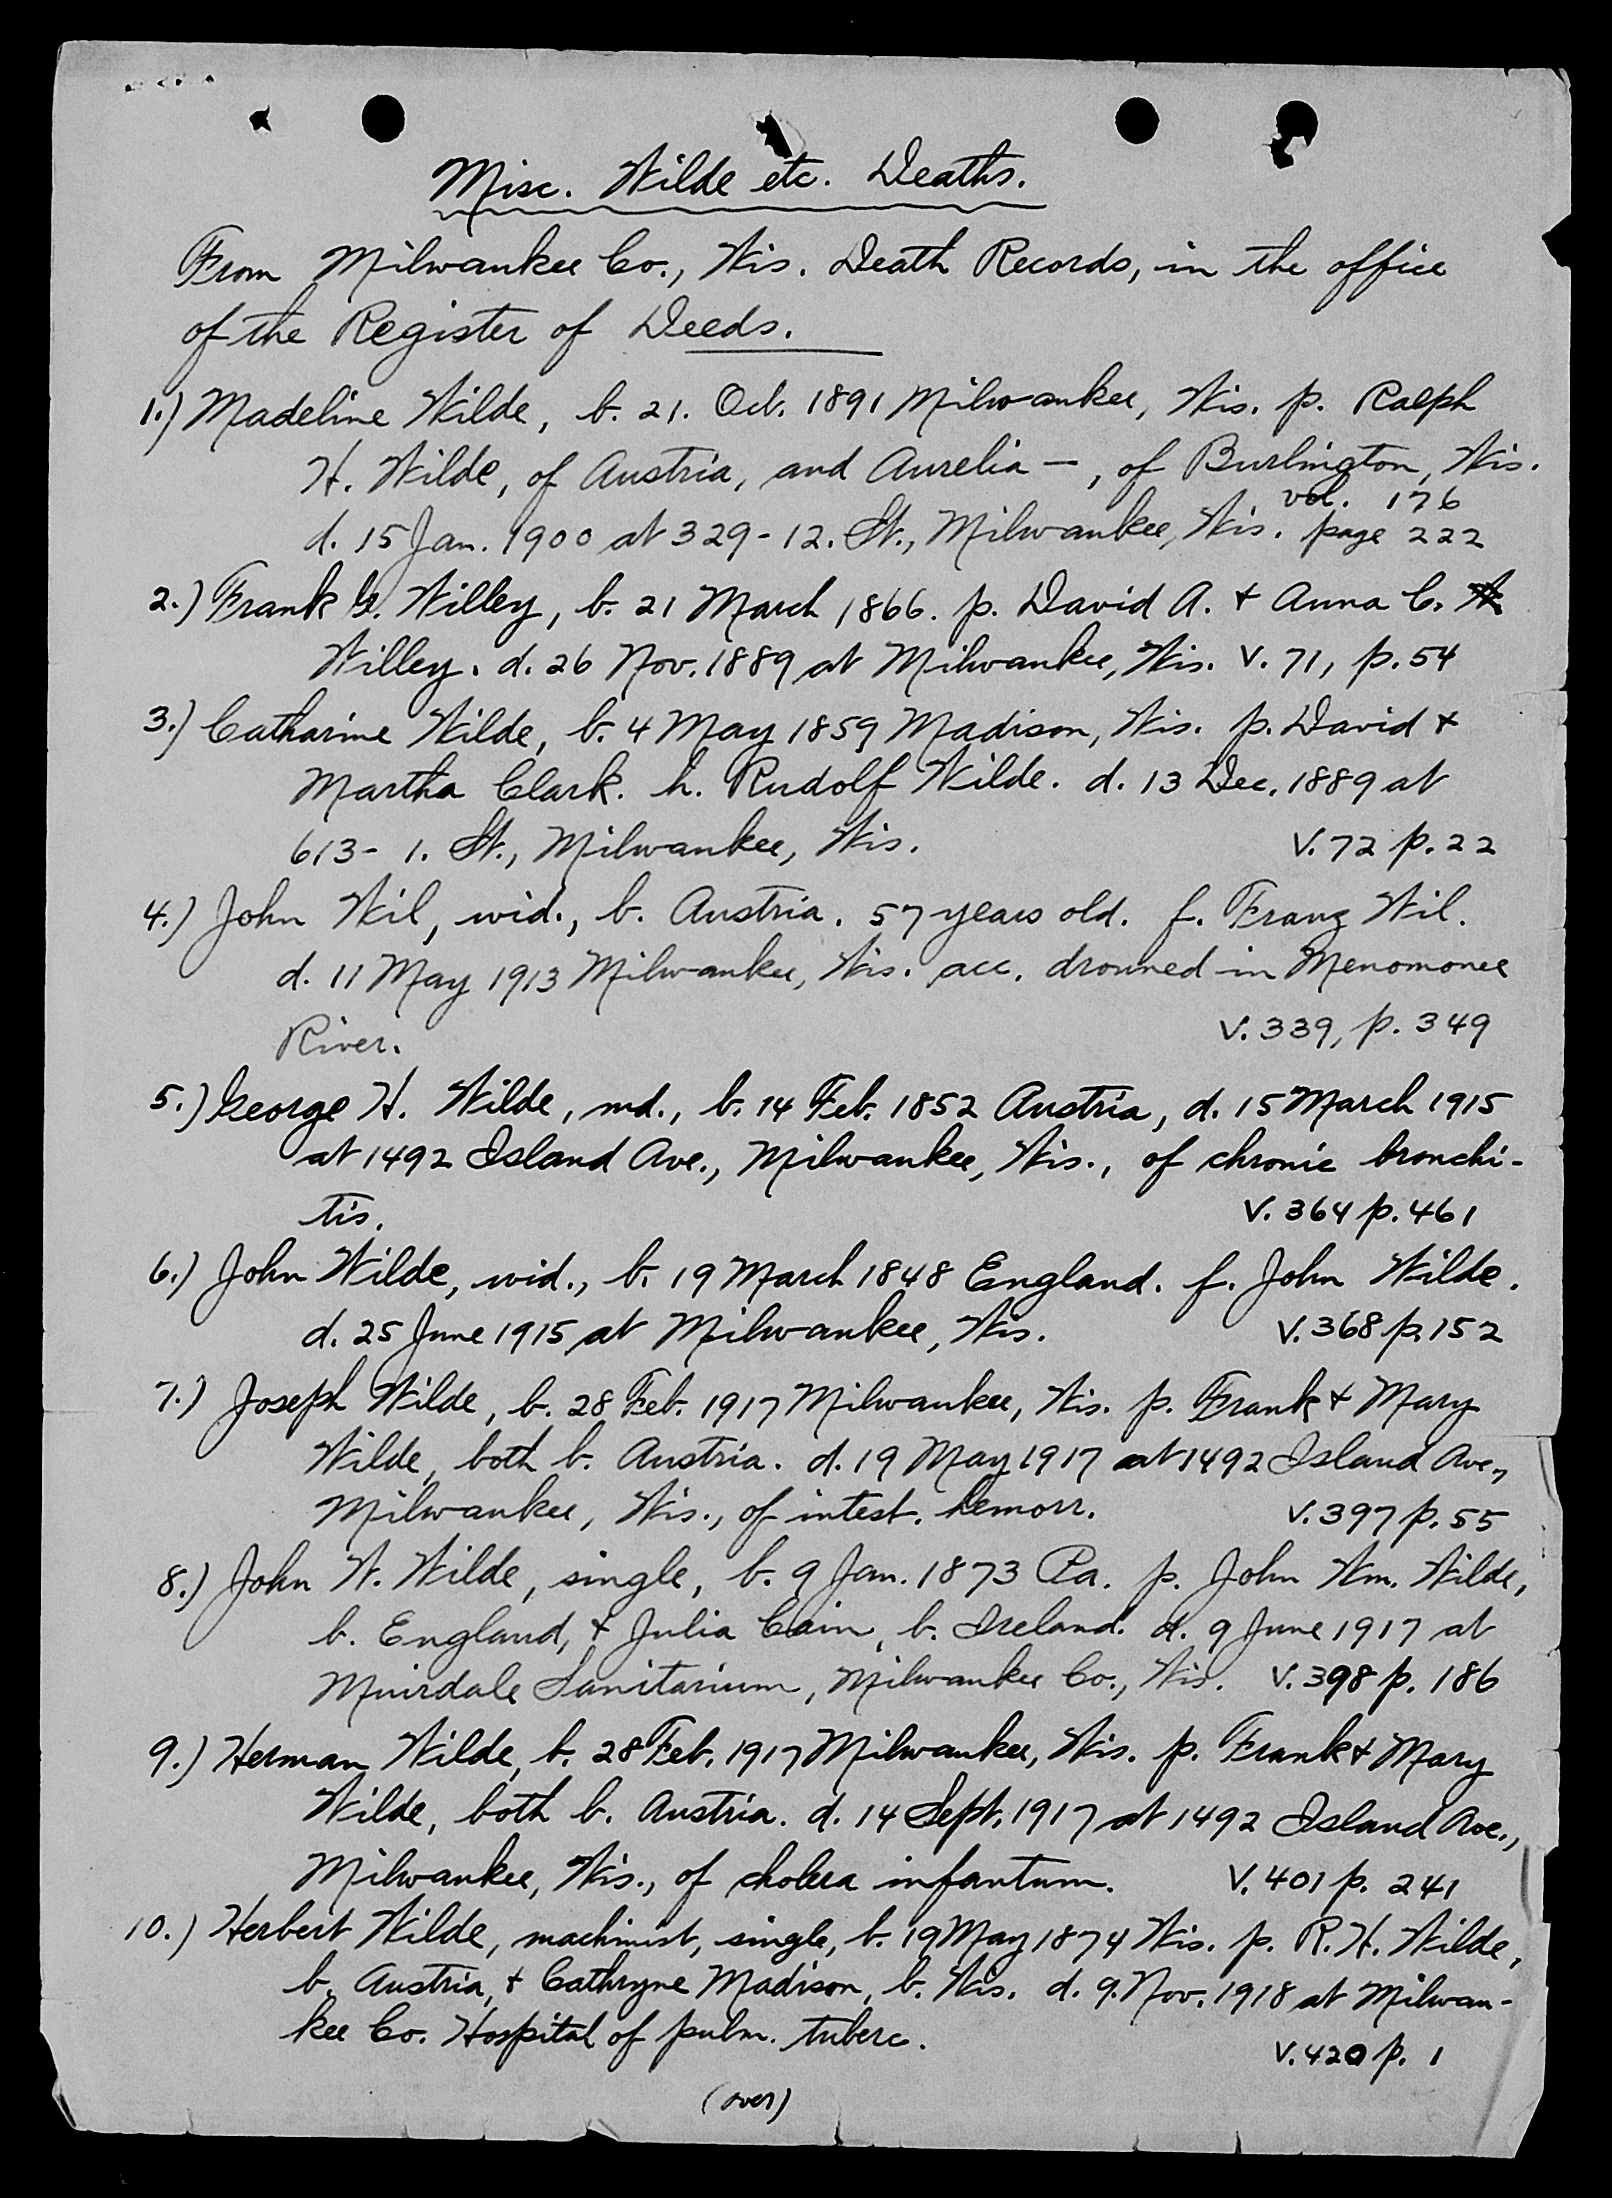 Misc. Wilde etc. Deaths.
From Milwaukee Co., Wis. Death Records, in the office
of the Register of Deeds.
1.) Madeline Wilde, b. 21. Oct. 1891 Milwaukee, Wis. p. Ralph
H. Wilde, of Austria, and Aurelia —, of Burlington, Wis.
vol. 176
d. 15 Jan. 1900 at 329 - 12. St., Milwaukee, Wis. page 222
2.) Frank G. Willey, b. 21 March 1866. p. David A. + Anna C.
Willey. d. 26 Nov. 1889 at Milwaukee, Wis. V. 71, p. 54
3.) Catharine Wilde, b. 4 May 1859 Madison, Wis. p. David +
Martha Clark. h. Rudolf Wilde. d. 13 Dec. 1889 at
613 - 1. St., Milwaukee, Wis. V. 72 p. 22
4.) John Wil, wid., b. Austria. 57 years old. f. Franz Wil.
d. 11 May 1913 Milwaukee, Wis. acc. drowned in Menomonee
River. V. 339, p. 349
5.) George H. Wilde, md., b. 14 Feb. 1852 Austria, d. 15 March 1915
at 1492 Island Ave., Milwaukee, Wis., of chronic bronchi-
tis. V. 364 p. 461
6.) John Wilde, wid., b. 19 March 1848 England. f. John Wilde.
d. 25 June 1915 at Milwaukee, Wis. V. 368 p. 152
7.) Joseph Wilde, b. 28 Feb. 1917 Milwaukee, Wis. p. Frank + Mary
Wilde, both b. Austria. d. 19 May 1917 at 1492 Island Ave.,
Milwaukee, Wis., of intest. hemorr. V. 397 p. 55
8.) John W. Wilde, single, b. 9 Jan. 1873 Pa. p. John Wm. Wilde,
b. England, + Julia Cain, b. Ireland. d. 9 June 1917 at
Muirdale Sanitarium, Milwaukee Co., Wis. V. 398 p. 186
9.) Herman Wilde, b. 28 Feb. 1917 Milwaukee, Wis. p. Frank + Mary
Wilde, both b. Austria. d. 14 Sept. 1917 at 1492 Island Ave.,
Milwaukee, Wis., of cholera infantum. V. 401 p. 241
10.) Herbert Wilde, machinist, single, b. 19 May 1874 Wis. p. R. H. Wilde,
b. Austria, + Cathryne Madison, b. Wis. d. 9. Nov. 1918 at Milwau-
kee Co. Hospital of pulm. tuberc. V. 420 p. 1
(over)